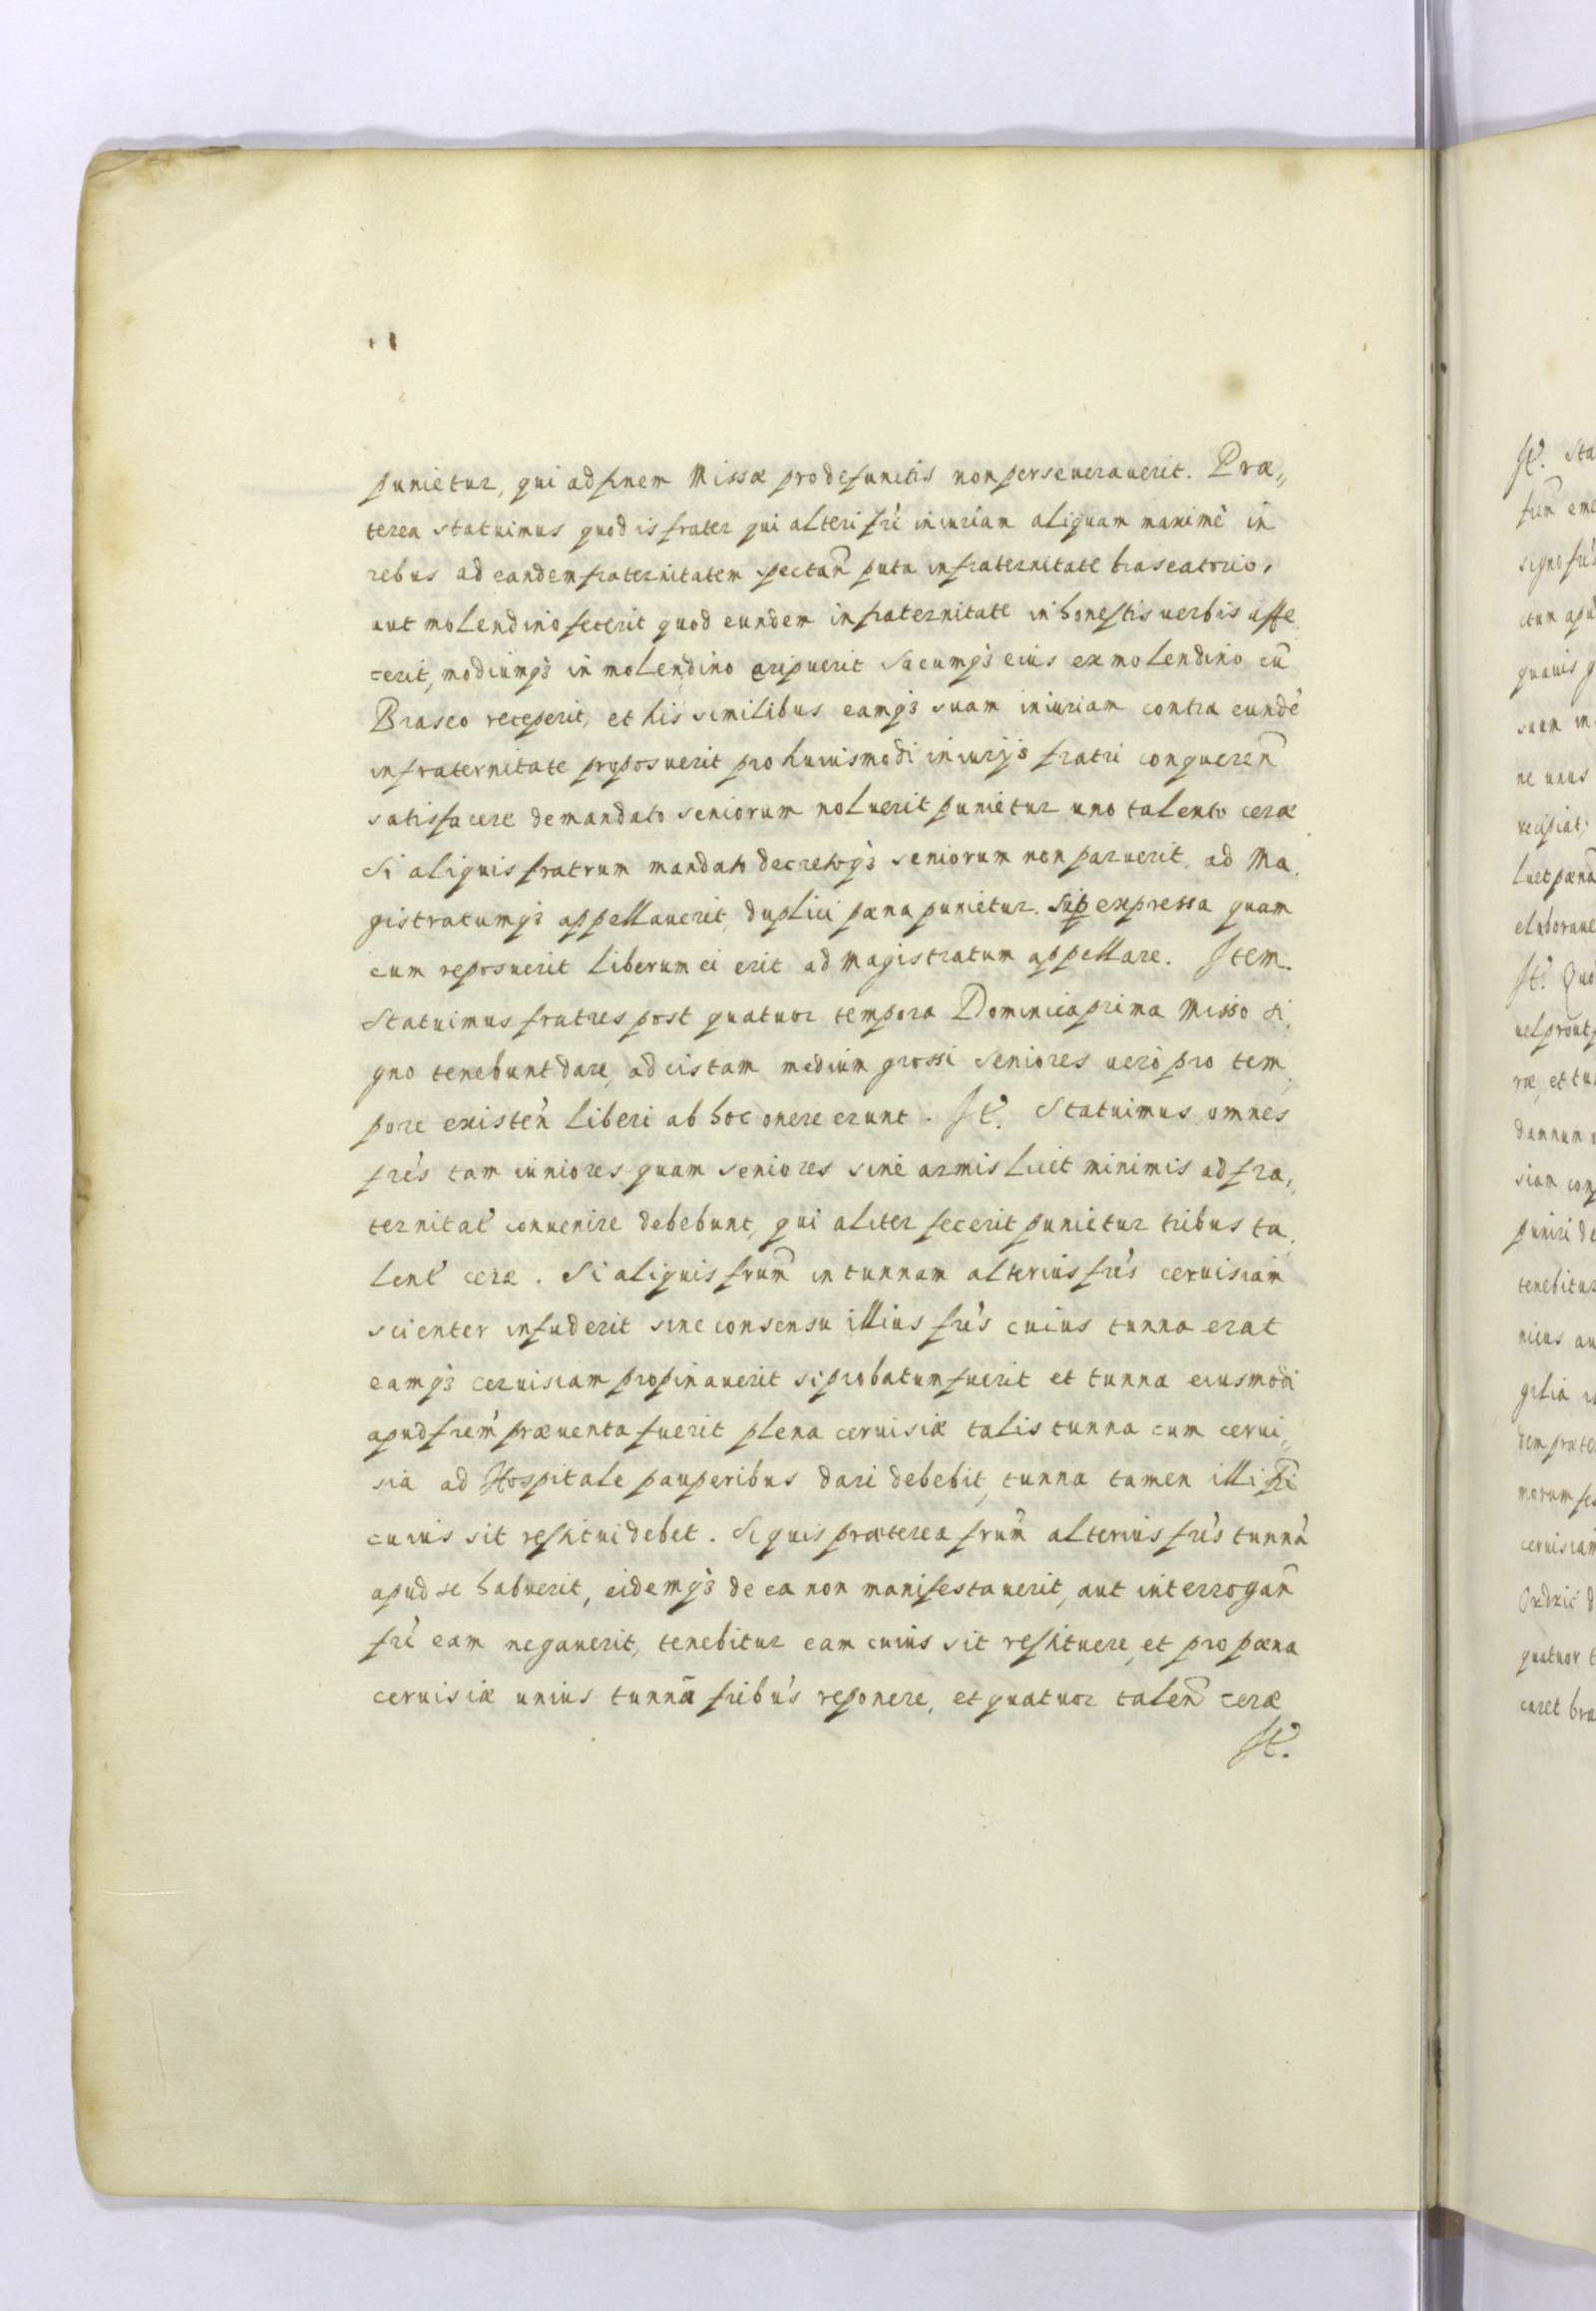 punietur, qui ad finem Missæ pro defunctis non perseverauerit. Præ„
terea statuimus quod is frater qui alteri fri iniuriam aliquam maximè in
rebus ad eandem fraternitatem spectan puta in fraternitate braseatorio,
aut molendino fecerit quod eundem in fraternitate inhonestis uerbis affe„
cerit, modiumqз in molendino eripuerit Sacumqз eius ex molendino cū
Braseo receperit, et his similibus eamqз suam iniuriam contra eundē
in fraternitate proposuerit pro huiusmodi iniurijs fratri conqueren
satisfacere de mandato seniorum noluerit punietur uno talento ceræ
Si aliquis fratrum mandato decretoqз seniorum non paruerit, ad Ma„
gistratumqз appellauerit, duplici pæna punietur. Sup expressa quam
cum reposuerit liberum ei erit ad Magistratum appellare. Item.
Statuimus fratres post quatuor tempora Dominica prima Misso si„
gno tenebunt dare, ad cistam medium grossi Seniores uerò pro tem„
pore existen liberi ab hoc onere erunt. It. Statuimus omnes
fres tam iuniores quam seniores sine armis licit minimis ad fra„
ternitat conuenire debebunt, qui aliter fecerit punietur tribus ta„
lent ceræ. Si aliquis frum in tunnam alterius fris ceruisiam
scienter infuderit sine consensu illius fris cuius tunna erat
eamqз ceruisiam propinauerit si probatum fuerit et tunna eiusmodi
apud frem præuenta fuerit plena ceruisiæ talis tunna cum cerui„
sia ad Hospitale pauperibus dari debebit, tunna tamen illi fri
cuius sit restitui debet. Si quis præterea frum alterius fris tunnā
apud se habuerit, eidemqз de ea non manifestauerit, aut interrogan
fri eam negauerit, tenebitur eam cuius sit restituere, et pro pæna
ceruisiæ unius tunnā fribus reponere, et quatuor talen ceræ
It.